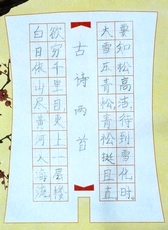 古诗两首
白日依山尽黄河入海流
欲穷千里目更上一层楼
大雪压青松青松挺且直
要知松高洁待到雪化时